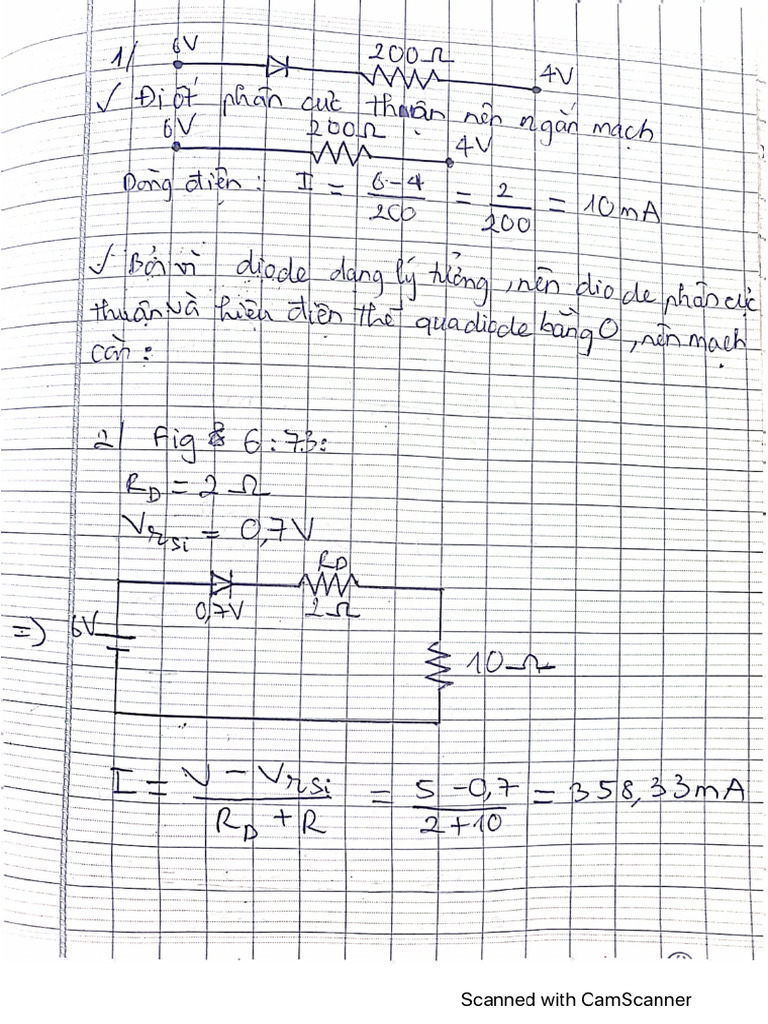 1/ 6V 200Ω 4V
✓ Điốt phân cực thuận nên ngắn mạch
6V 200Ω 4V
Dòng điện : I = 6-4/200 = 2/200 = 10mA
✓ Bởi vì diode dạng lý tưởng, nên diode phân cực
thuận và hiệu điện thế qua diode bằng 0, nên mạch
cần :
2/ Fig 6:73:
R_D = 2Ω
V_rsi = 0,7V
R_D
0,7V 2Ω
=) 6V
10Ω
I = V - V_rsi / R_D + R = 5 - 0,7 / 2+10 = 358,33mA
Scanned with CamScanner